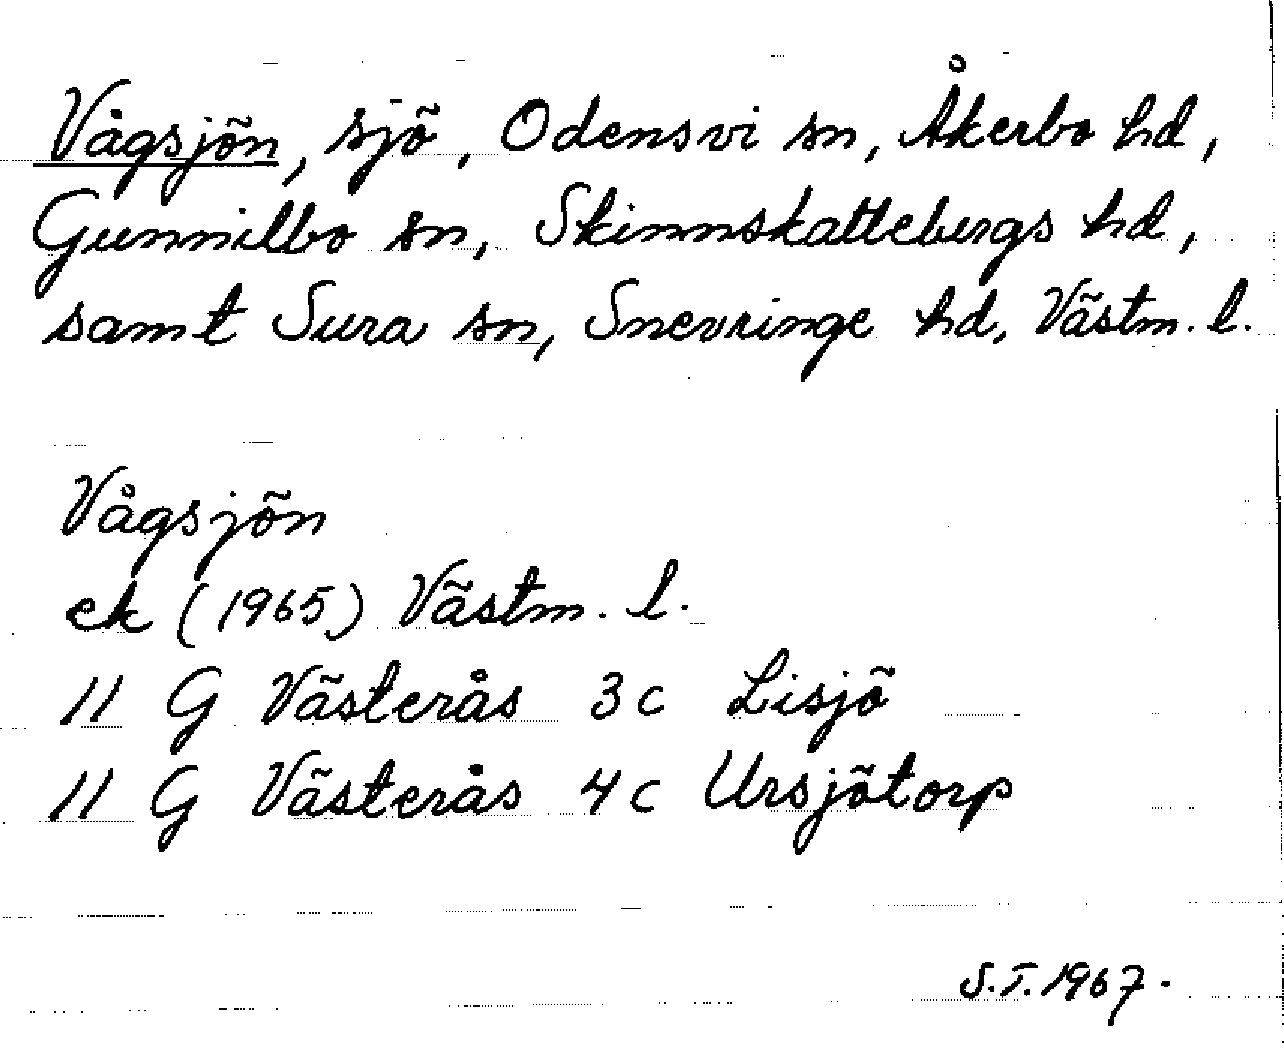 Vågsjön, sjö, Odensvi sn, Åkerbo hd,
Gunnilbo sn, Skinnskattebergs hd,
samt Sura sn, Snevringe hd, Västm. l.
Vågsjön
ek (1965) Västm. l.
11 G Västerås 3c Lisjö
11 G Västerås 4c Ursjötorp
S.T. 1967.